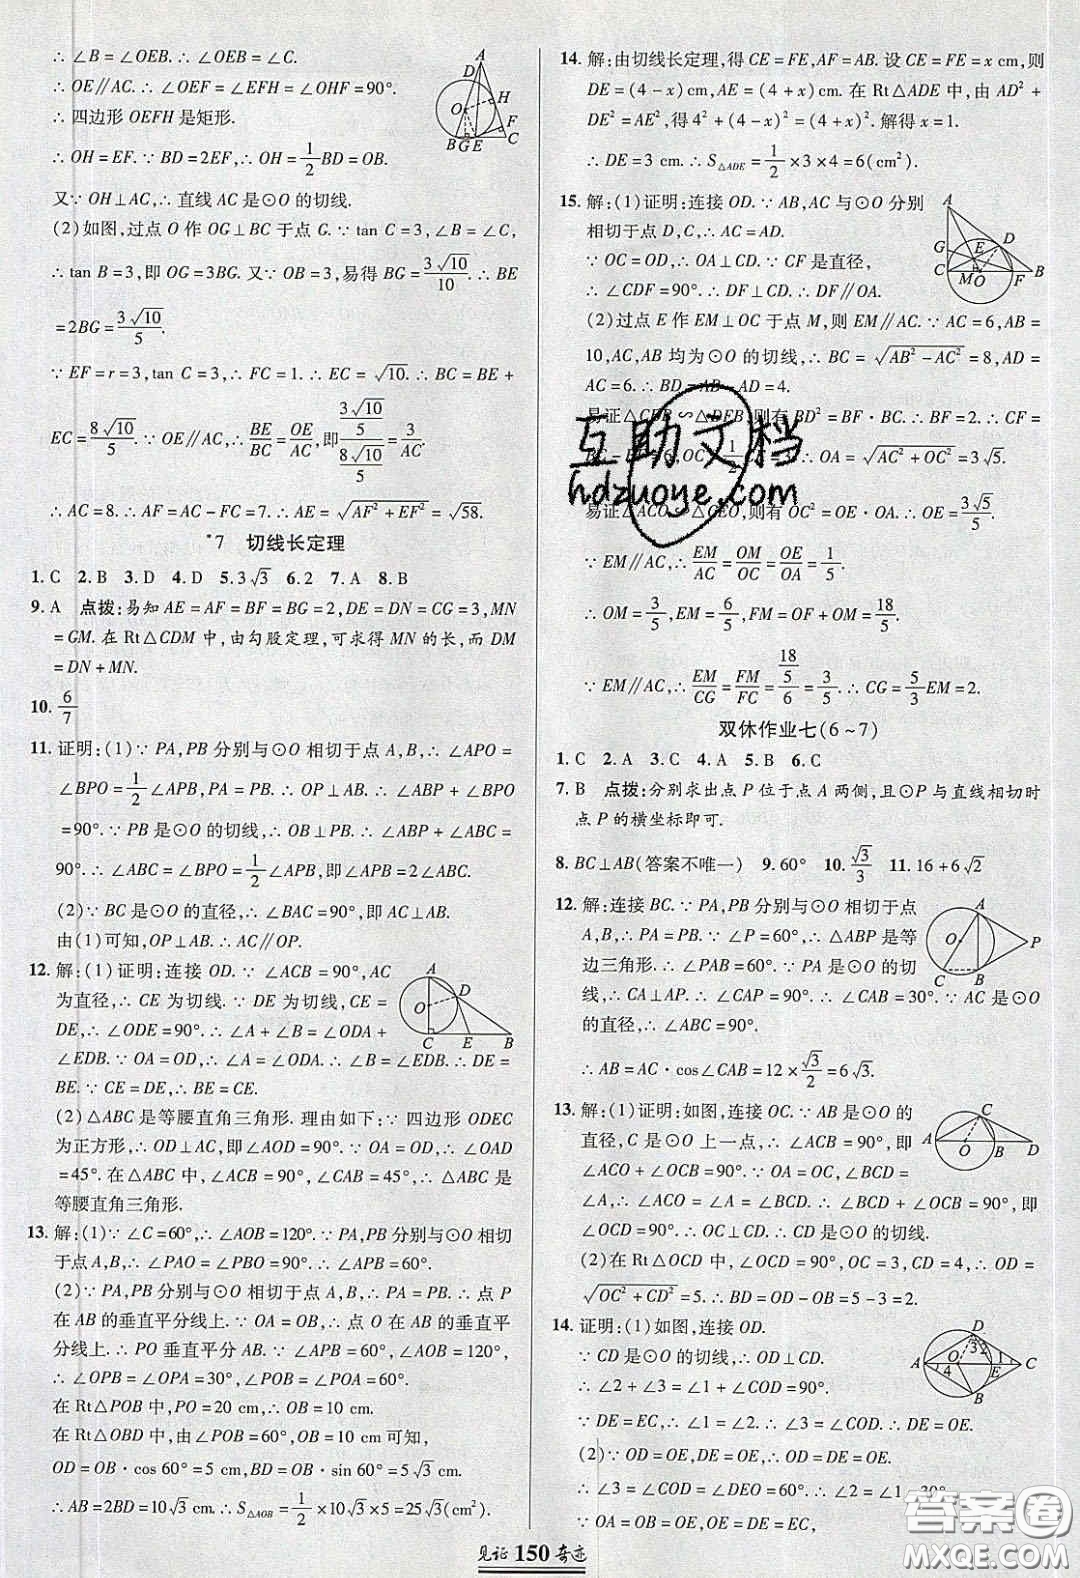 ∴ ∠B = ∠OEB. ∴ ∠OEB = ∠C.
∴ OE∥AC. ∴ ∠OEF = ∠EFH = ∠OHF = 90°.
∴ 四边形 OEFH 是矩形.
∴ OH = EF. ∵ BD = 2EF, ∴ OH = 1/2 BD = OB.
又∵ OH⊥AC, ∴ 直线 AC 是⊙O 的切线.
(2)如图,过点 O 作 OG⊥BC 于点 G. ∵ tan C = 3, ∠B = ∠C,
∴ tan B = 3,即 OG = 3BG. 又∵ OB = 3,易得 BG = 3√10/10. ∴ BE
= 2BG = 3√10/5.
∵ EF = r = 3, tan C = 3, ∴ FC = 1. ∴ EC = √10. ∴ BC = BE +
EC = 8√10/5. ∵ OE∥AC, ∴ BE/BC = OE/AC,即 (3√10/5)/(8√10/5) = 3/AC.
∴ AC = 8. ∴ AF = AC - FC = 7. ∴ AE = √(AF² + EF²) = √58.
*7 切线长定理
1. C 2. B 3. D 4. D 5. 3√3 6. 2 7. A 8. B
9. A 点拨:易知 AE = AF = BF = BG = 2, DE = DN = CG = 3, MN
= GM. 在 Rt△CDM 中,由勾股定理,可求得 MN 的长,而 DM
= DN + MN.
10. 6/7
11. 证明:(1)∵ PA,PB 分别与⊙O 相切于点 A,B, ∴ ∠APO =
∠BPO = 1/2 ∠APB, PA = PB. ∴ OP⊥AB. ∴ ∠ABP + ∠BPO
= 90°. ∵ PB 是⊙O 的切线, ∴ OB⊥PB. ∴ ∠ABP + ∠ABC =
90°. ∴ ∠ABC = ∠BPO = 1/2 ∠APB,即 ∠APB = 2∠ABC.
(2)∵ BC 是⊙O 的直径, ∴ ∠BAC = 90°,即 AC⊥AB.
由(1)可知, OP⊥AB. ∴ AC∥OP.
12. 解:(1)证明:连接 OD. ∵ ∠ACB = 90°, AC
为直径, ∴ CE 为切线. ∵ DE 为切线, CE =
DE, ∴ ∠ODE = 90°. ∴ ∠A + ∠B = ∠ODA +
∠EDB. ∵ OA = OD, ∴ ∠A = ∠ODA. ∴ ∠B = ∠EDB. ∴ DE =
BE. ∵ CE = DE, ∴ BE = CE.
(2)△ABC 是等腰直角三角形. 理由如下:∵ 四边形 ODEC
为正方形, ∴ OD⊥AC,即∠AOD = 90°. ∵ OA = OD, ∴ ∠OAD
= 45°. 在△ABC 中, ∠ACB = 90°, ∠CAB = 45°, ∴ △ABC 是
等腰直角三角形.
13. 解:(1)∵ ∠C = 60°, ∴ ∠AOB = 120°. ∵ PA,PB 分别与⊙O 相切
于点 A,B, ∴ ∠PAO = ∠PBO = 90°. ∴ ∠APB = 60°.
(2)∵ PA,PB 分别与⊙O 相切于点 A,B, ∴ PA = PB. ∴ 点 P
在 AB 的垂直平分线上. ∵ OA = OB, ∴ 点 O 在 AB 的垂直平
分线上. ∴ PO 垂直平分线段 AB. ∵ ∠APB = 60°, ∠AOB = 120°,
∴ ∠OPB = ∠OPA = 30°, ∠POB = ∠POA = 60°. ∵ 在
Rt△POB 中, PO = 20 cm, ∴ OB = 10 cm.
在 Rt△OBD 中,由 ∠POB = 60°, OB = 10 cm 可知,
OD = OB · cos 60° = 5 cm, BD = OB · sin 60° = 5√3 cm.
∴ AB = 2BD = 10√3 cm. ∴ S△AOB = 1/2 × 10√3 × 5 = 25√3 (cm²).
14. 解:由切线长定理,得 CE = FE, AF = AB. 设 CE = FE = x cm,则
DE = (4 - x) cm, AE = (4 + x) cm. 在 Rt△ADE 中,由 AD² +
DE² = AE²,得 4² + (4 - x)² = (4 + x)². 解得 x = 1.
∴ DE = 3 cm. ∴ S△ADE = 1/2 × 3 × 4 = 6(cm²).
15. 解:(1)证明:连接 OD. ∵ AB,AC 与⊙O 分别
相切于点 D,C, ∴ AC = AD.
∵ OC = OD, ∴ OA⊥CD. ∵ CF 是直径,
∴ ∠CDF = 90°. ∴ DF⊥CD. ∴ DF∥OA.
(2)过点 E 作 EM⊥OC 于点 M,则 EM∥AC. ∵ AC = 6, AB =
10, AC, AB 均为⊙O 的切线, ∴ BC = √(AB² - AC²) = 8, AD =
AC = 6. ∴ BD = AB - AD = 4.
易证△CDB∽△DFB,则有 BD² = BF · BC. ∴ BF = 2. ∴ CF =
BC - BF = 6, OC = 1/2 CF = 3. ∴ OA = √(AC² + OC²) = 3√5.
易证△ACO∽△CEO,则有 OC² = OE · OA. ∴ OE = 3√5/5.
∵ EM∥AC, ∴ EM/AC = OM/OC = OE/OA = 1/5.
∴ OM = 3/5, EM = 6/5, FM = OF + OM = 18/5.
∵ EM∥AC, ∴ EM/CG = FM/FC = (18/5)/6 = 3/5. ∴ CG = 5/3 EM = 2.
双休作业七(6~7)
1. C 2. A 3. C 4. A 5. B 6. C
7. B 点拨:分别求出点 P 位于点 A 两侧,且⊙P 与直线相切时
点 P 的横坐标即可.
8. BC⊥AB(答案不唯一) 9. 60° 10. √3/3 11. 16 + 6√2
12. 解:连接 BC. ∵ PA,PB 分别与⊙O 相切于点
A,B, ∴ PA = PB. ∵ ∠P = 60°, ∴ △ABP 是等
边三角形. ∴ ∠PAB = 60°. ∵ PA 是⊙O 的切
线, ∴ CA⊥AP. ∴ ∠CAB = 30°. ∵ AC 是⊙O
的直径, ∴ ∠ABC = 90°.
∴ AB = AC · cos∠CAB = 12 × √3/2 = 6√3.
13. 解:(1)证明:如图,连接 OC. ∵ AB 是⊙O 的
直径, C 是⊙O 上一点, ∴ ∠ACB = 90°,即
∠ACO + ∠OCB = 90°. ∵ OA = OC, ∠BCD =
∠A, ∴ ∠ACO = ∠A = ∠BCD. ∴ ∠BCD + ∠OCB = 90°,即
∠OCD = 90°. ∴ OC⊥CD. ∴ CD 是⊙O 的切线.
(2)在 Rt△OCD 中, ∠OCD = 90°, OC = 3, CD = 4, ∴ OD =
√(OC² + CD²) = 5. ∴ BD = OD - OB = 5 - 3 = 2.
14. 证明:(1)如图,连接 OD.
∵ CD 是⊙O 的切线, ∴ OD⊥CD.
∴ ∠2 + ∠3 = ∠1 + ∠COD = 90°.
∵ DE = EC, ∴ ∠1 = ∠2. ∴ ∠3 = ∠COD. ∴ DE = OE.
(2)∵ OD = OE, DE = OE, ∴ OD = DE = OE.
∴ ∠3 = ∠COD = ∠DEO = 60°. ∴ ∠2 = ∠1 = 30°.
∵ OA = OB = OE, OE = DE = EC,
见证 150 奇迹
互助文档
hdzuoye.com
答案圈
MXQE.COM